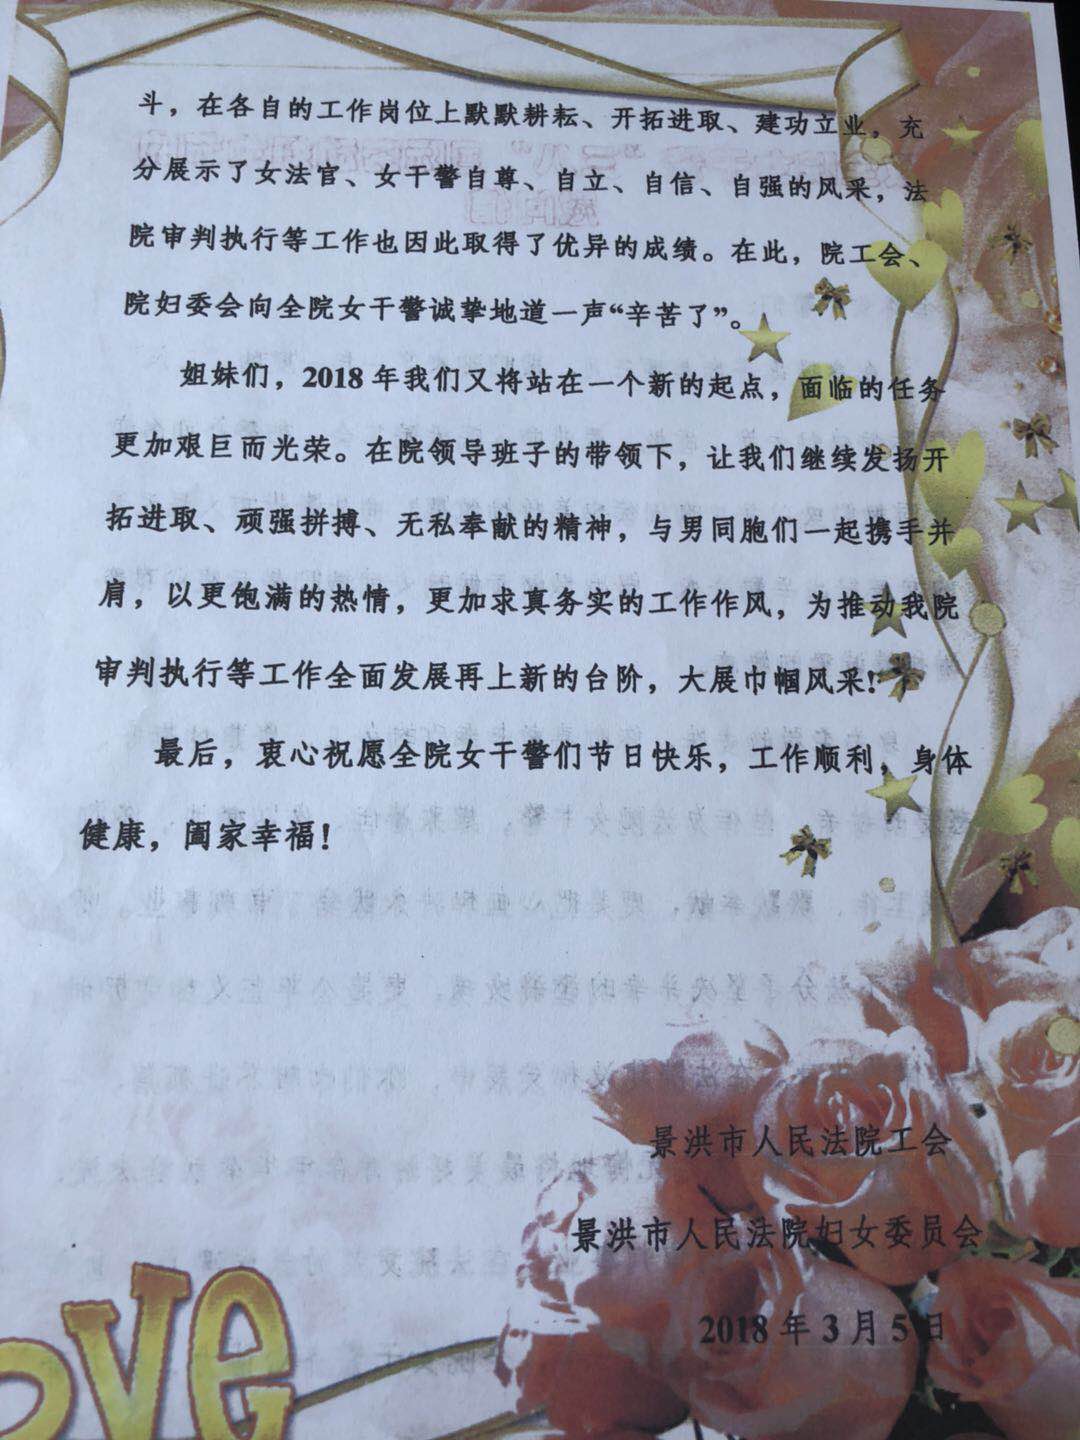 斗，在各自的工作岗位上默默耕耘、开拓进取、建功立业，充
分展示了女法官、女干警自尊、自立、自信、自强的风采，法
院审判执行等工作也因此取得了优异的成绩。在此，院工会、
院妇委会向全院女干警诚挚地道一声“辛苦了”。
姐妹们，2018年我们又将站在一个新的起点，面临的任务
更加艰巨而光荣。在院领导班子的带领下，让我们继续发扬开
拓进取、顽强拼搏、无私奉献的精神，与男同胞们一起携手并
肩，以更饱满的热情，更加求真务实的工作作风，为推动我院
审判执行等工作全面发展再上新的台阶，大展巾帼风采!
最后，衷心祝愿全院女干警们节日快乐，工作顺利，身体
健康，阖家幸福!
景洪市人民法院工会
景洪市人民法院妇女委员会
2018年3月5日
ove